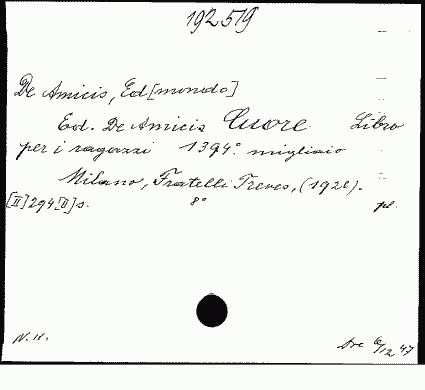 192519
De Amicis, Ed[mondo]
Ed. De Amicis Cuore Libro
per i ragazzi 1394° migliaio
Milano, Fratelli Treves, (192
[II]294[II]s. 8° pl.
N. H.
6/12 47